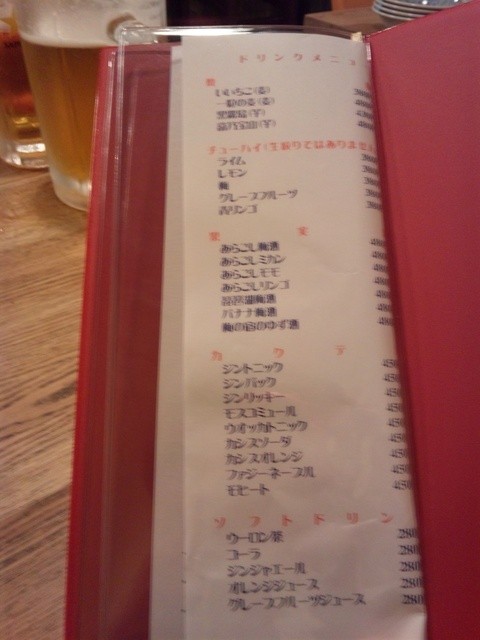 ドリンクメニュ
いいちこ(麦)
一粒の麦(麦)
黒霧島(芋)
富乃宝山(芋)
チューハイ(生搾りではありません
ライム
レモン
梅
グレープフルーツ
青リンゴ
果 実
あらごし梅酒 480
あらごしミカン 480
あらごしモモ 480
あらごしリンゴ 480
琵琶湖梅酒 480
バナナ梅酒 480
梅の宿のゆず酒 480
カ ク テ
ジントニック 450
ジンバック 450
ジンリッキー 450
モスコミュール 450
ウオッカトニック 450
カシスソーダ 450
カシスオレンジ 450
ファジーネーブル 450
モヒート 450
ソフトドリン
ウーロン茶 280
コーラ 280
ジンジャエール 280
オレンジジュース 280
グレープフルーツジュース 280